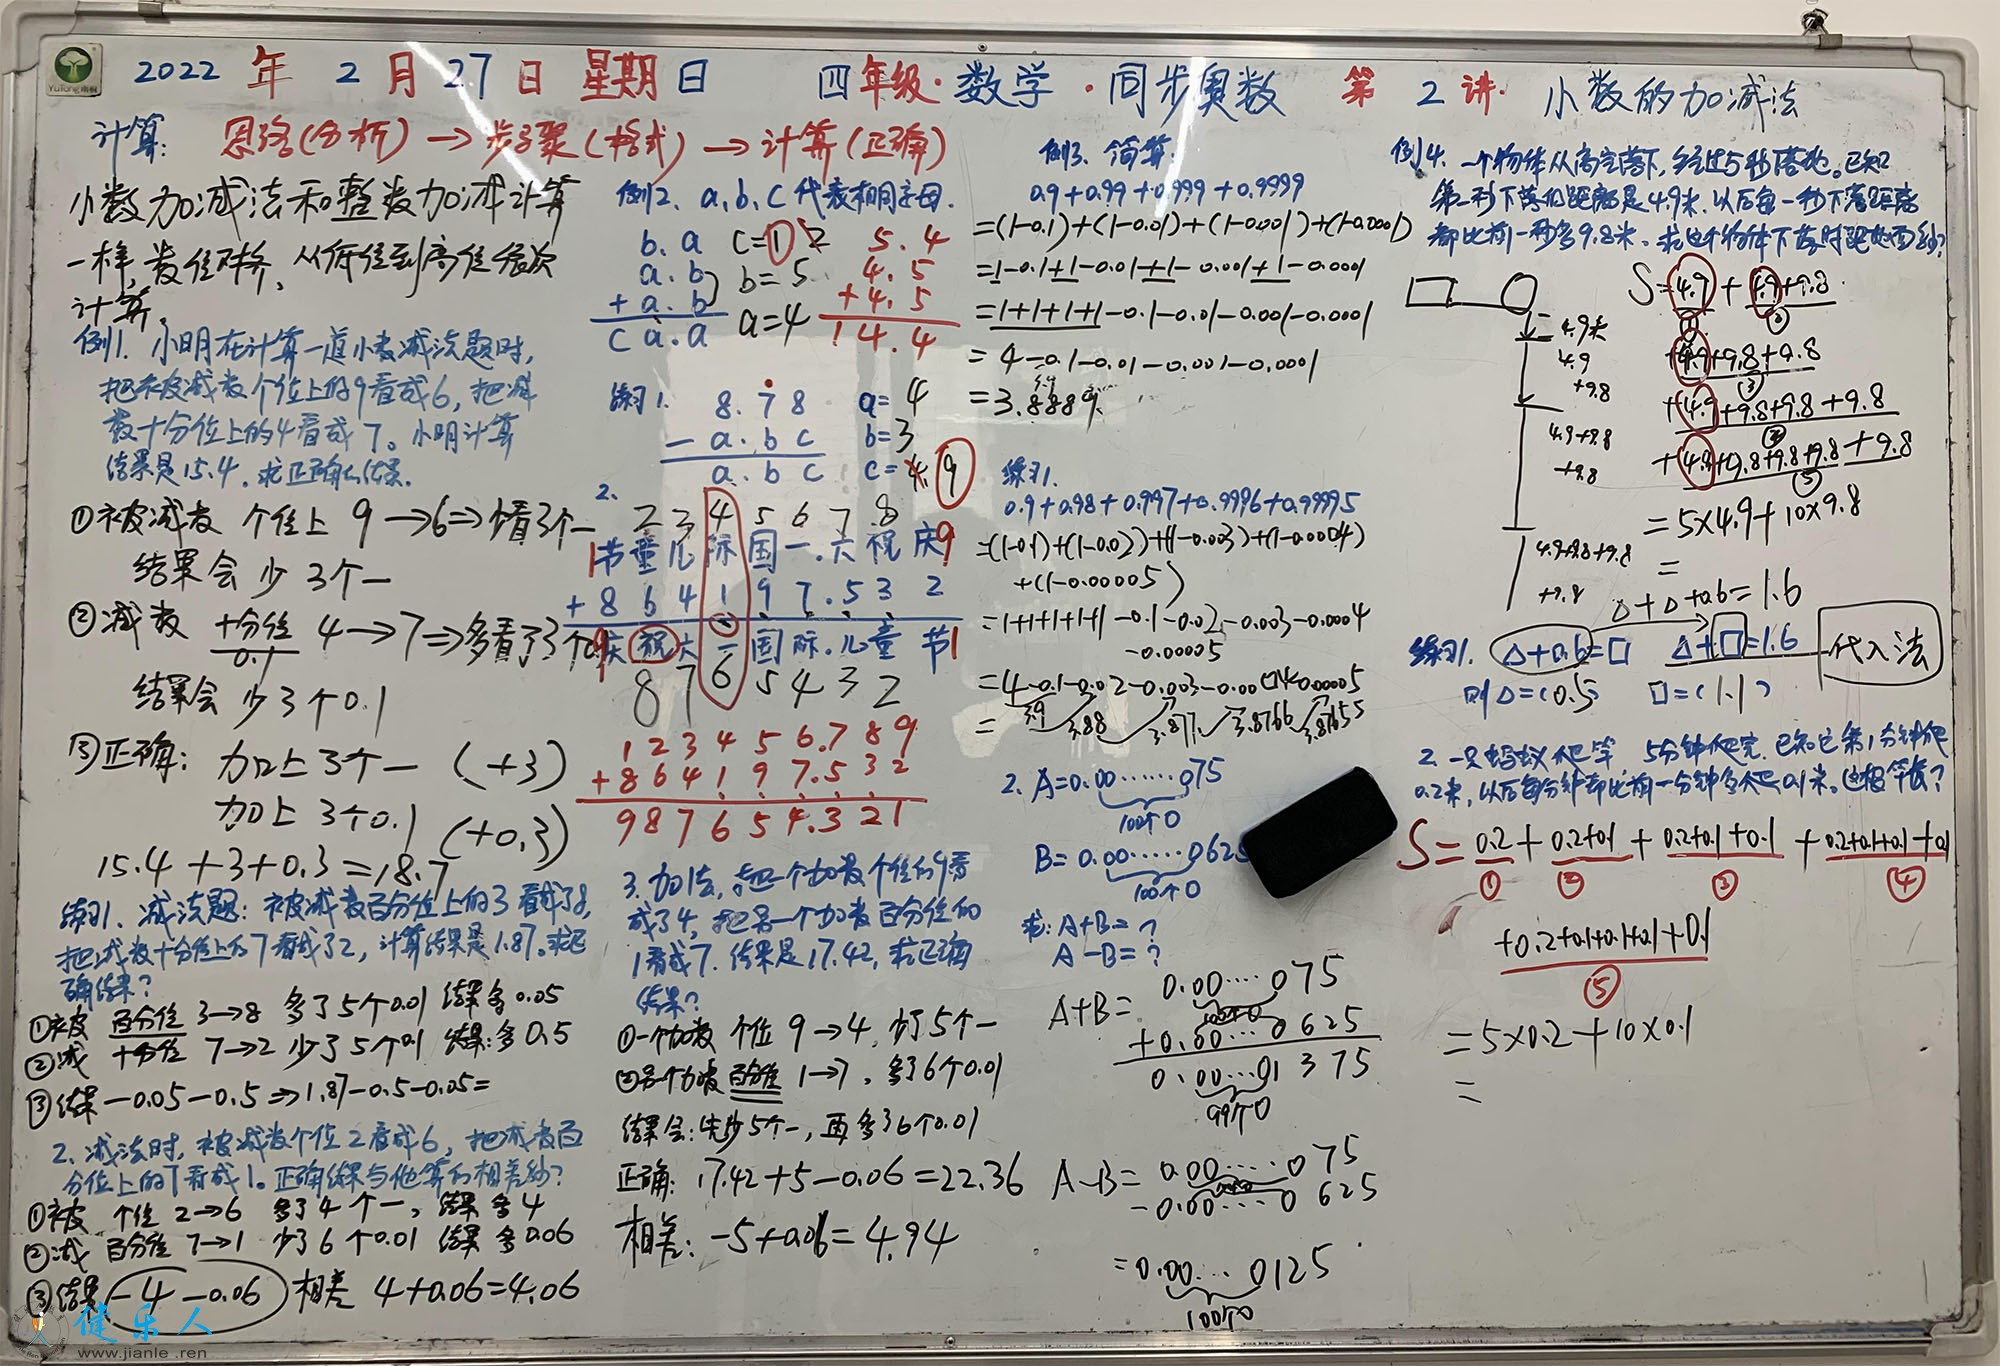 2022年2月27日 星期日 四年级·数学·同步奥数 第2讲· 小数的加减法
计算: 思路(分析)→步骤(格式)→计算(正确)
小数加减法和整数加减计算
一样,数位对齐,从低位到高位依次
计算。
例1. 小明在计算一道小数减法题时,
把被减数个位上的9看成6,把减
数十分位上的4看成7。小明计算
结果是15.4,求正确的结果.
①被减数 个位上 9→6⇒少看3个一
结果会少3个一
②减数 十分位 4→7⇒多看了3个0.1
0.1
结果会少3个0.1
③正确: 加上3个一 (+3)
加上3个0.1 (+0.3)
15.4+3+0.3=18.7
练习1. 减法题:被减数百分位上的3看成了8,
把减数十分位上的7看成了2,计算结果是1.87。求正
确结果?
①被 百分位 3→8 多了5个0.01 结果多0.05
②减 十分位 7→2 少了5个0.1 结果:多0.5
③结果 -0.05-0.5⇒1.87-0.5-0.05=
2. 减法时,被减数个位2看成6,把减数百
分位上的7看成1。正确结果与他算的相差多少?
①被 个位 2→6 多了4个一,结果多4
②减 百分位 7→1 少了6个0.01 结果多0.06
③结果 -4-0.06 相差 4+0.06=4.06
例2. a,b,c代表相同字母.
b.a c=1 2 5.4
a.b b=5 4.5
+a.b a=4 +4.5
ca.a 14.4
练习1. 8.78 a=4
-a.bc b=3
a.bc c=4 9
2. 2 3 4 5 6 7 8
1节童儿际国一.六祝庆9
+8 6 4 1 9 7.5 3 2
9庆祝六一国际.儿童节1
8 7 6 5 4 3 2
1 2 3 4 5 6.7 8 9
+8 6 4 1 9 7.5 3 2
9 8 7 6 5 4.3 2 1
3. 加法,把一个加数个位的9看
成了4,把另一个加数百分位的
1看成7.结果是17.42,求正确
结果?
①一个加数 个位 9→4,少了5个一
②另一个加数 百分位 1→7,多了6个0.01
结果会:先少5个一,再多了6个0.01
正确: 17.42+5-0.06=22.36
相差: -5+0.06=4.94
例3. 简算.
0.9+0.99+0.999+0.9999
=(1-0.1)+(1-0.01)+(1-0.001)+(1-0.0001)
=1-0.1+1-0.01+1-0.001+1-0.0001
=1+1+1+1-0.1-0.01-0.001-0.0001
=4-0.1-0.01-0.001-0.0001
=3.8889
练习1.
0.9+0.98+0.997+0.9996+0.99995
=(1-0.1)+(1-0.02)+(1-0.003)+(1-0.0004)
+(1-0.00005)
=1+1+1+1+1-0.1-0.02-0.003-0.0004
-0.00005
=4-0.1-0.02-0.003-0.0004-0.00005
= 3.9 3.88 3.877 3.8766 3.87655
2. A=0.00……075
100个0
B=0.00……0625
100个0
求: A+B=?
A-B=?
A+B= 0.00…075
+0.00…0625
0.00…01375
99个0
A-B= 0.00…075
-0.00…0625
=0.00…0125
100个0
例4. 一个物体从高空落下,经过5秒落地。已知
第一秒下落的距离是4.9米,以后每一秒下落距离
都比前一秒多9.8米。求这个物体下落时距地面多少?
S=4.9+4.9+9.8
① ②
+4.9+9.8+9.8
③
+4.9+9.8+9.8+9.8
④
+(4.9+9.8+9.8+9.8+9.8
⑤
=5×4.9+10×9.8
=
4.9米
4.9
+9.8
4.9+9.8
+9.8
4.9+9.8+9.8
+9.8
△+△+0.6=1.6
练习1. △+0.6=□ △+□=1.6 代入法
则△=(0.5) □=(1.1)
2. 一只蚂蚁爬竿,5分钟爬完.已知它第1分钟爬
0.2米,以后每分钟都比前一分钟多爬0.1米。这根竿长?
S=0.2+0.2+0.1+0.2+0.1+0.1+0.2+0.1+0.1+0.1
① ② ③ ④
+0.2+0.1+0.1+0.1+0.1
⑤
=5×0.2+10×0.1
=
YuTong
健乐人
www.jianle.ren